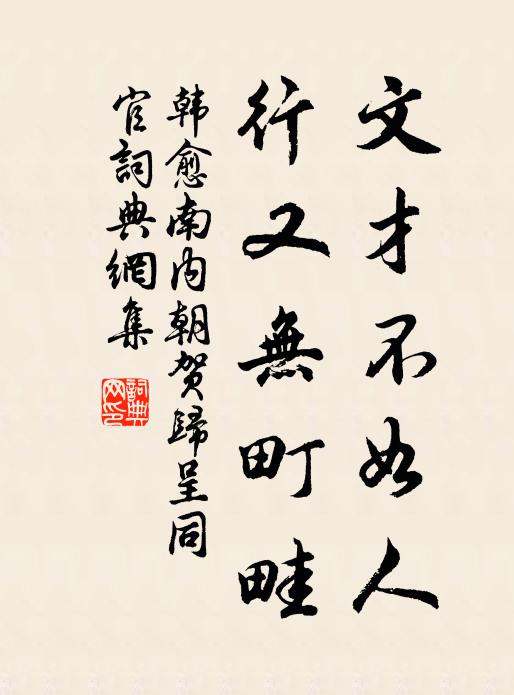 文才不如人
行又無町畦
韩愈南内朝贺歸呈同
官詞典網集
詞典
网印